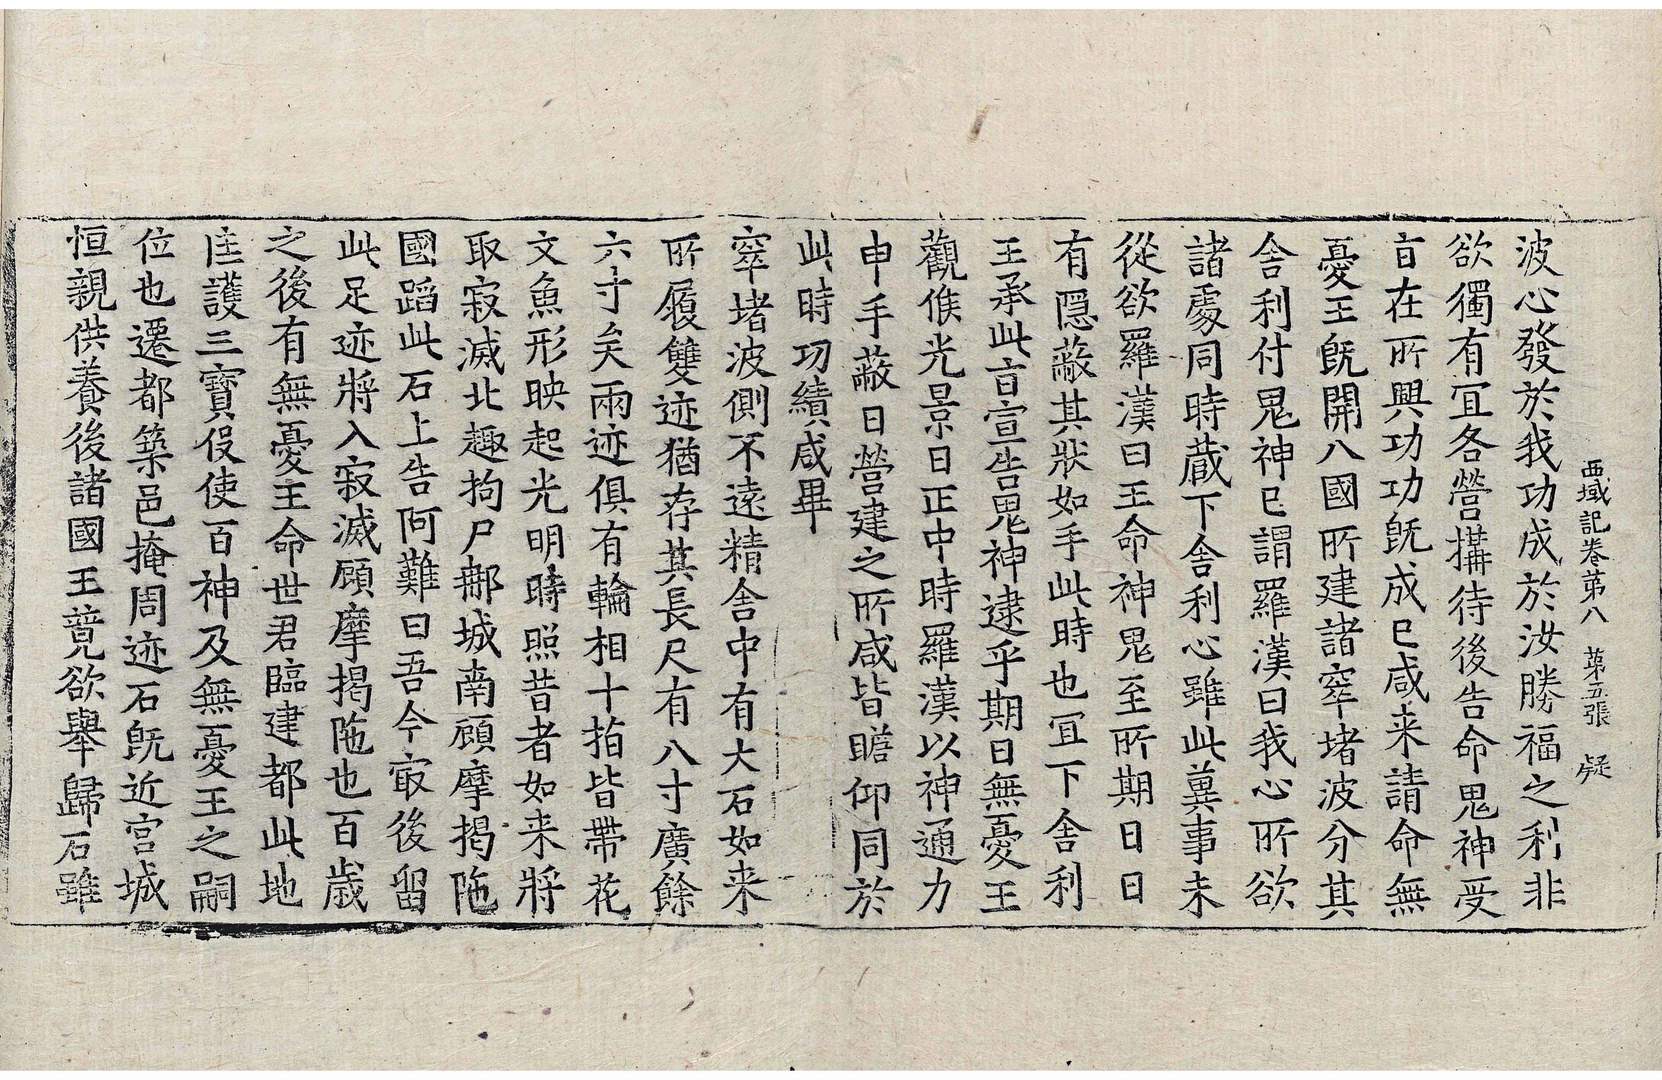 西域記卷苐八 苐五張 㝹
波心發於我功成於汝勝福之利非
欲獨有冝各營搆待後告命鬼神受
㫖在所興功功旣成已咸来請命無
憂王旣開八國所建諸窣堵波分其
舍利付鬼神已謂羅漢曰我心所欲
諸處同時藏下舍利心雖此兾事未
從欲羅漢曰王命神鬼至所期日日
有隱蔽其狀如手此時也冝下舍利
王承此㫖宣告鬼神逮乎期日無憂王
觀候光景日正中時羅漢以神通力
申手蔽日營建之所咸皆瞻仰同於
此時功績咸畢
窣堵波側不遠精舍中有大石如来
所履雙迹猶存其長尺有八寸廣餘
六寸矣兩迹俱有輪相十指皆帶花
文魚形映起光明時照昔者如来將
取寂滅北趣拘尸郍城南顧摩揭陁
國蹈此石上告阿難曰吾今㝡後留
此足迹將入寂滅顧摩揭陁也百歲
之後有無憂王命世君臨建都此地
匡護三寶役使百神及無憂王之嗣
位也遷都築邑掩周迹石旣近宮城
恒親供養後諸國王競欲舉歸石雖